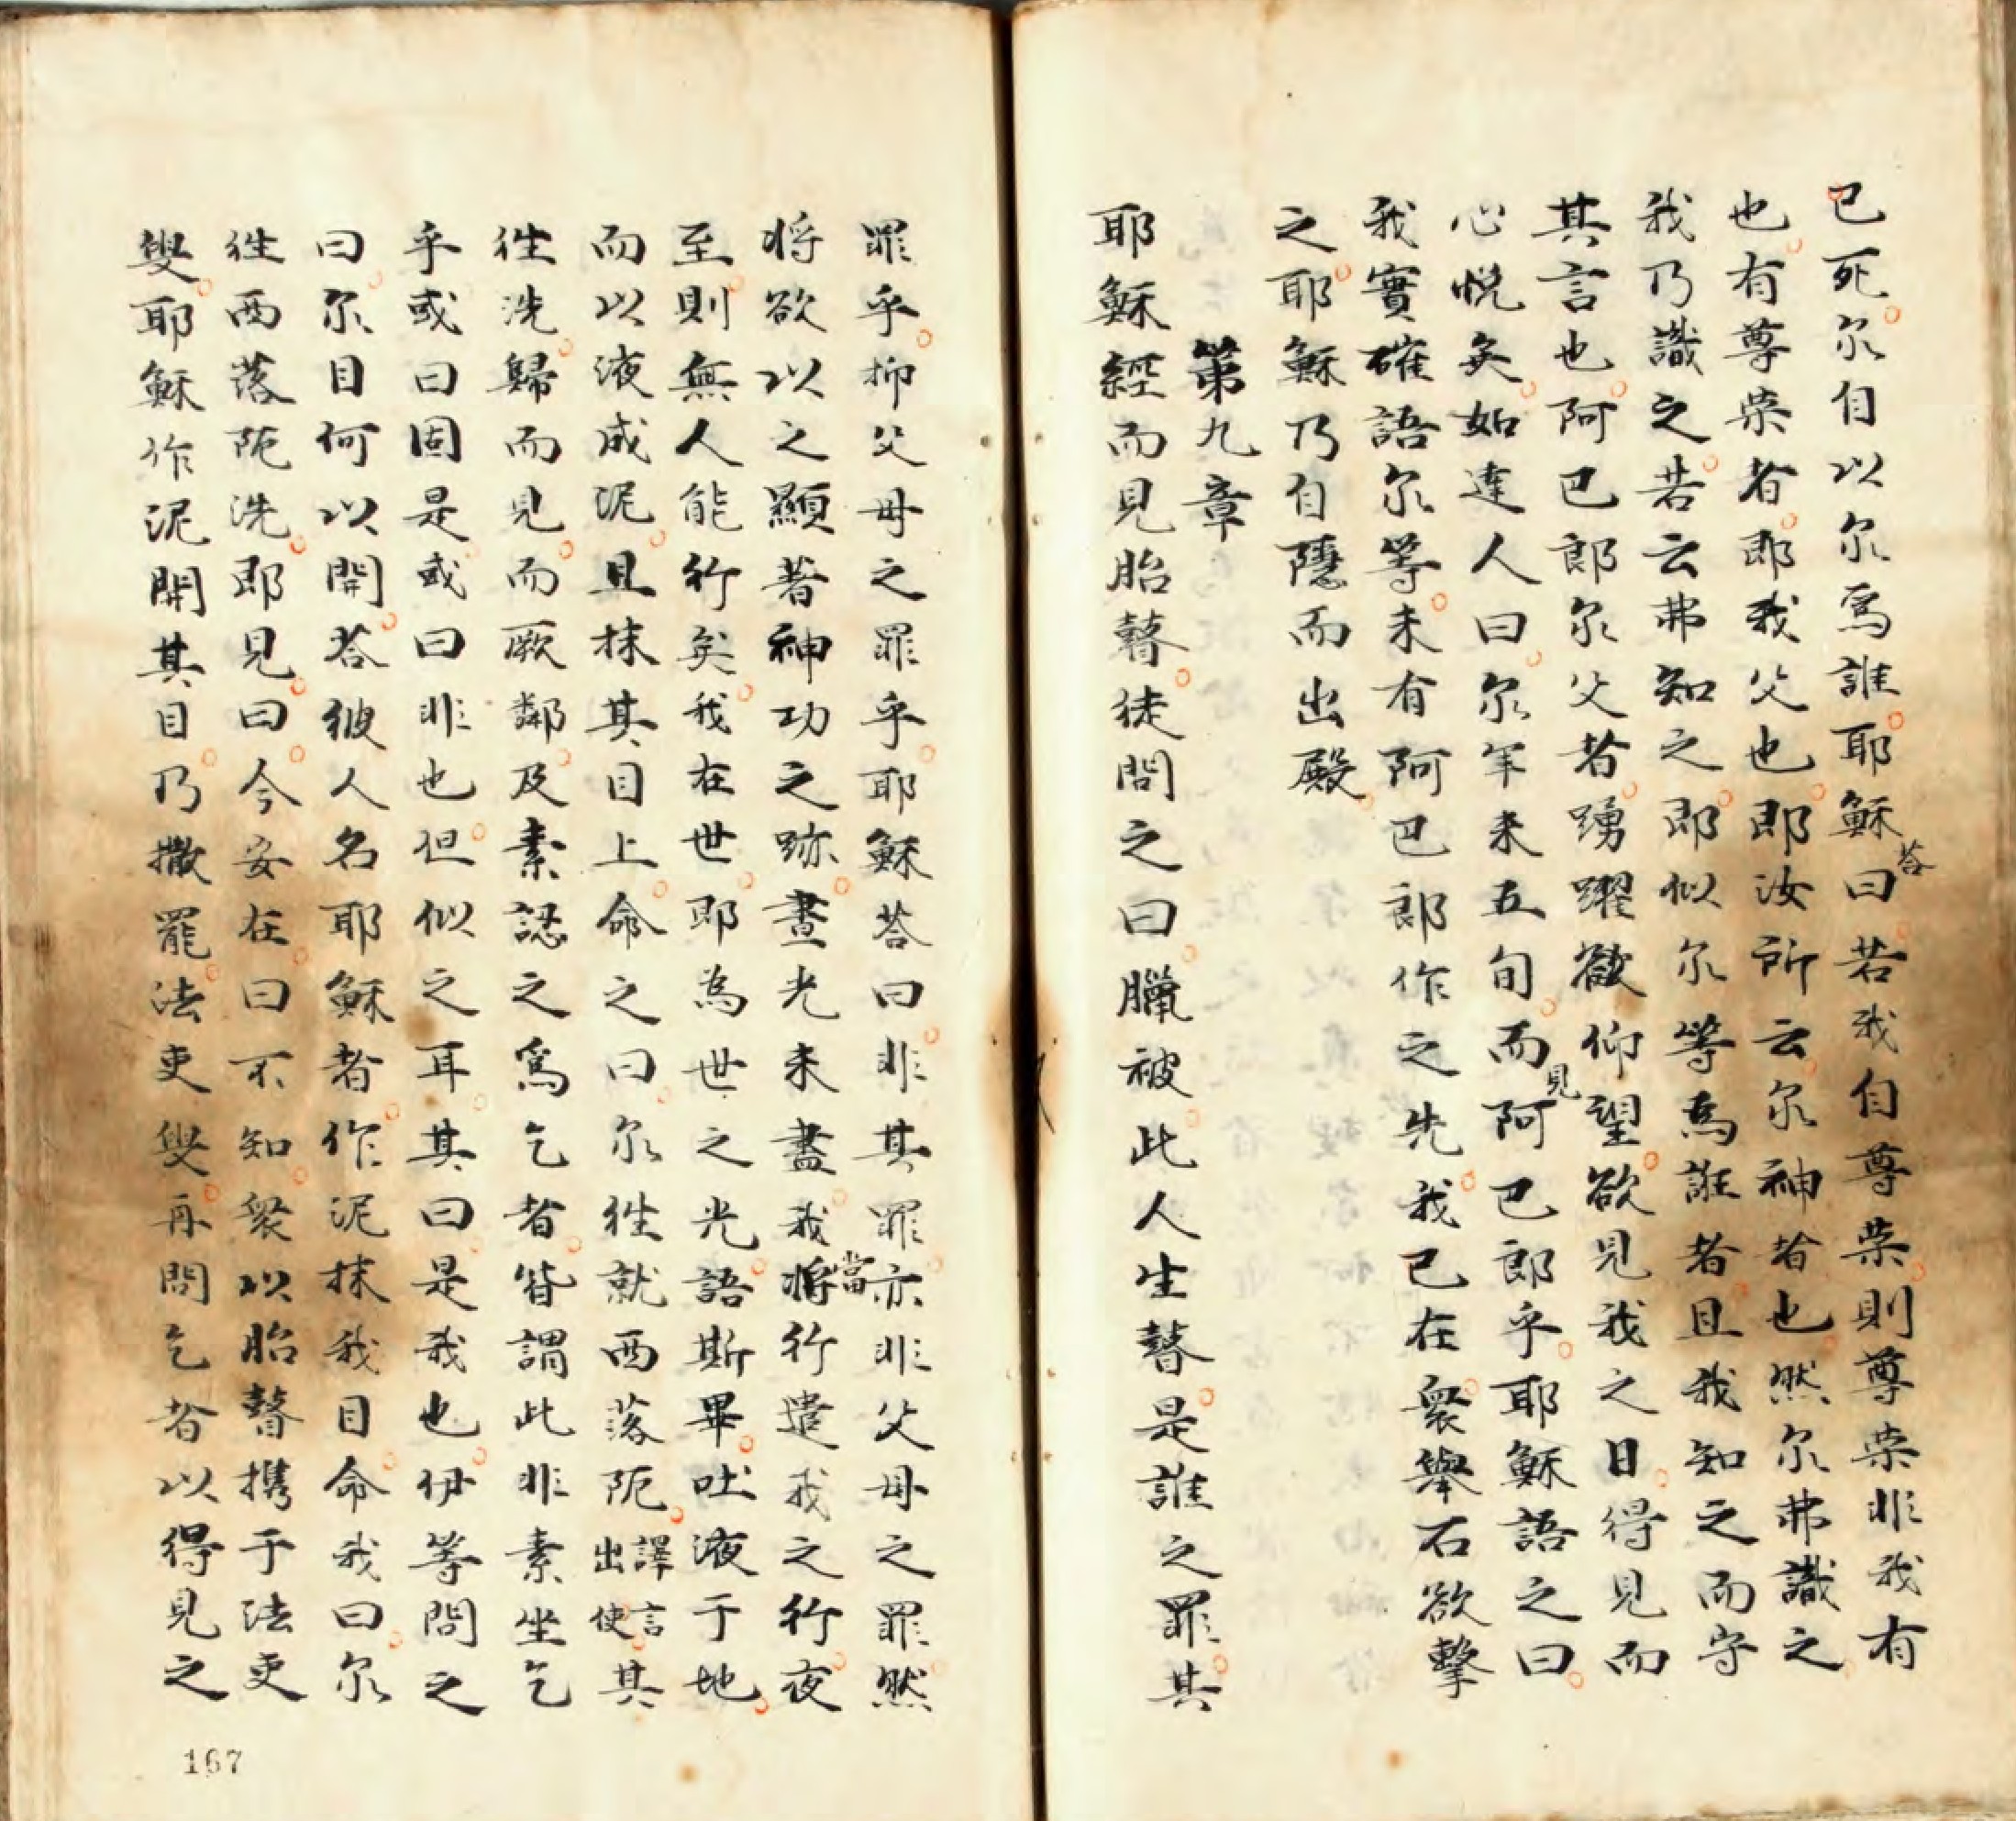 已死尔自以尔為誰耶穌答曰若我自尊荣則尊荣非我有
也有尊荣者即我父也即汝所云尔神者也然尔弗識之
我乃識之若云弗知之即似尔等為誰者且我知之而守
其言也阿巴郎尔父者踴躍仰望欲見我之日得見而
心悅矣如達人曰尔年未五旬而見阿巴郎乎耶穌語之曰
我實確語尔等未有阿巴郎作之先我已在衆舉石欲擊
之耶穌乃自隱而出殿
第九章
耶穌經而見胎瞽徒問之曰臘被此人生瞽是誰之罪其
罪乎抑父母之罪乎耶穌答曰非其罪亦非父母之罪然
將欲以之顯著神功之跡晝光未盡我將當行遣我之行夜
至則無人能行矣我在世即為世之光語斯畢吐液于地
而以液成泥且抹其目上命之曰尔徃就西落阨譯言出使其
徃洗歸而見而厥鄰及素認之為乞者皆謂此非素坐乞
乎或曰固是或曰非也但似之耳其曰是我也伊等問之
曰尔目何以開答彼人名耶穌者作泥抹我目命我曰尔
徃西落阨洗即見曰今安在曰不知衆以胎瞽携于法吏
叟耶穌作泥開其目乃撒罷法吏叟再問乞者以得見之
167